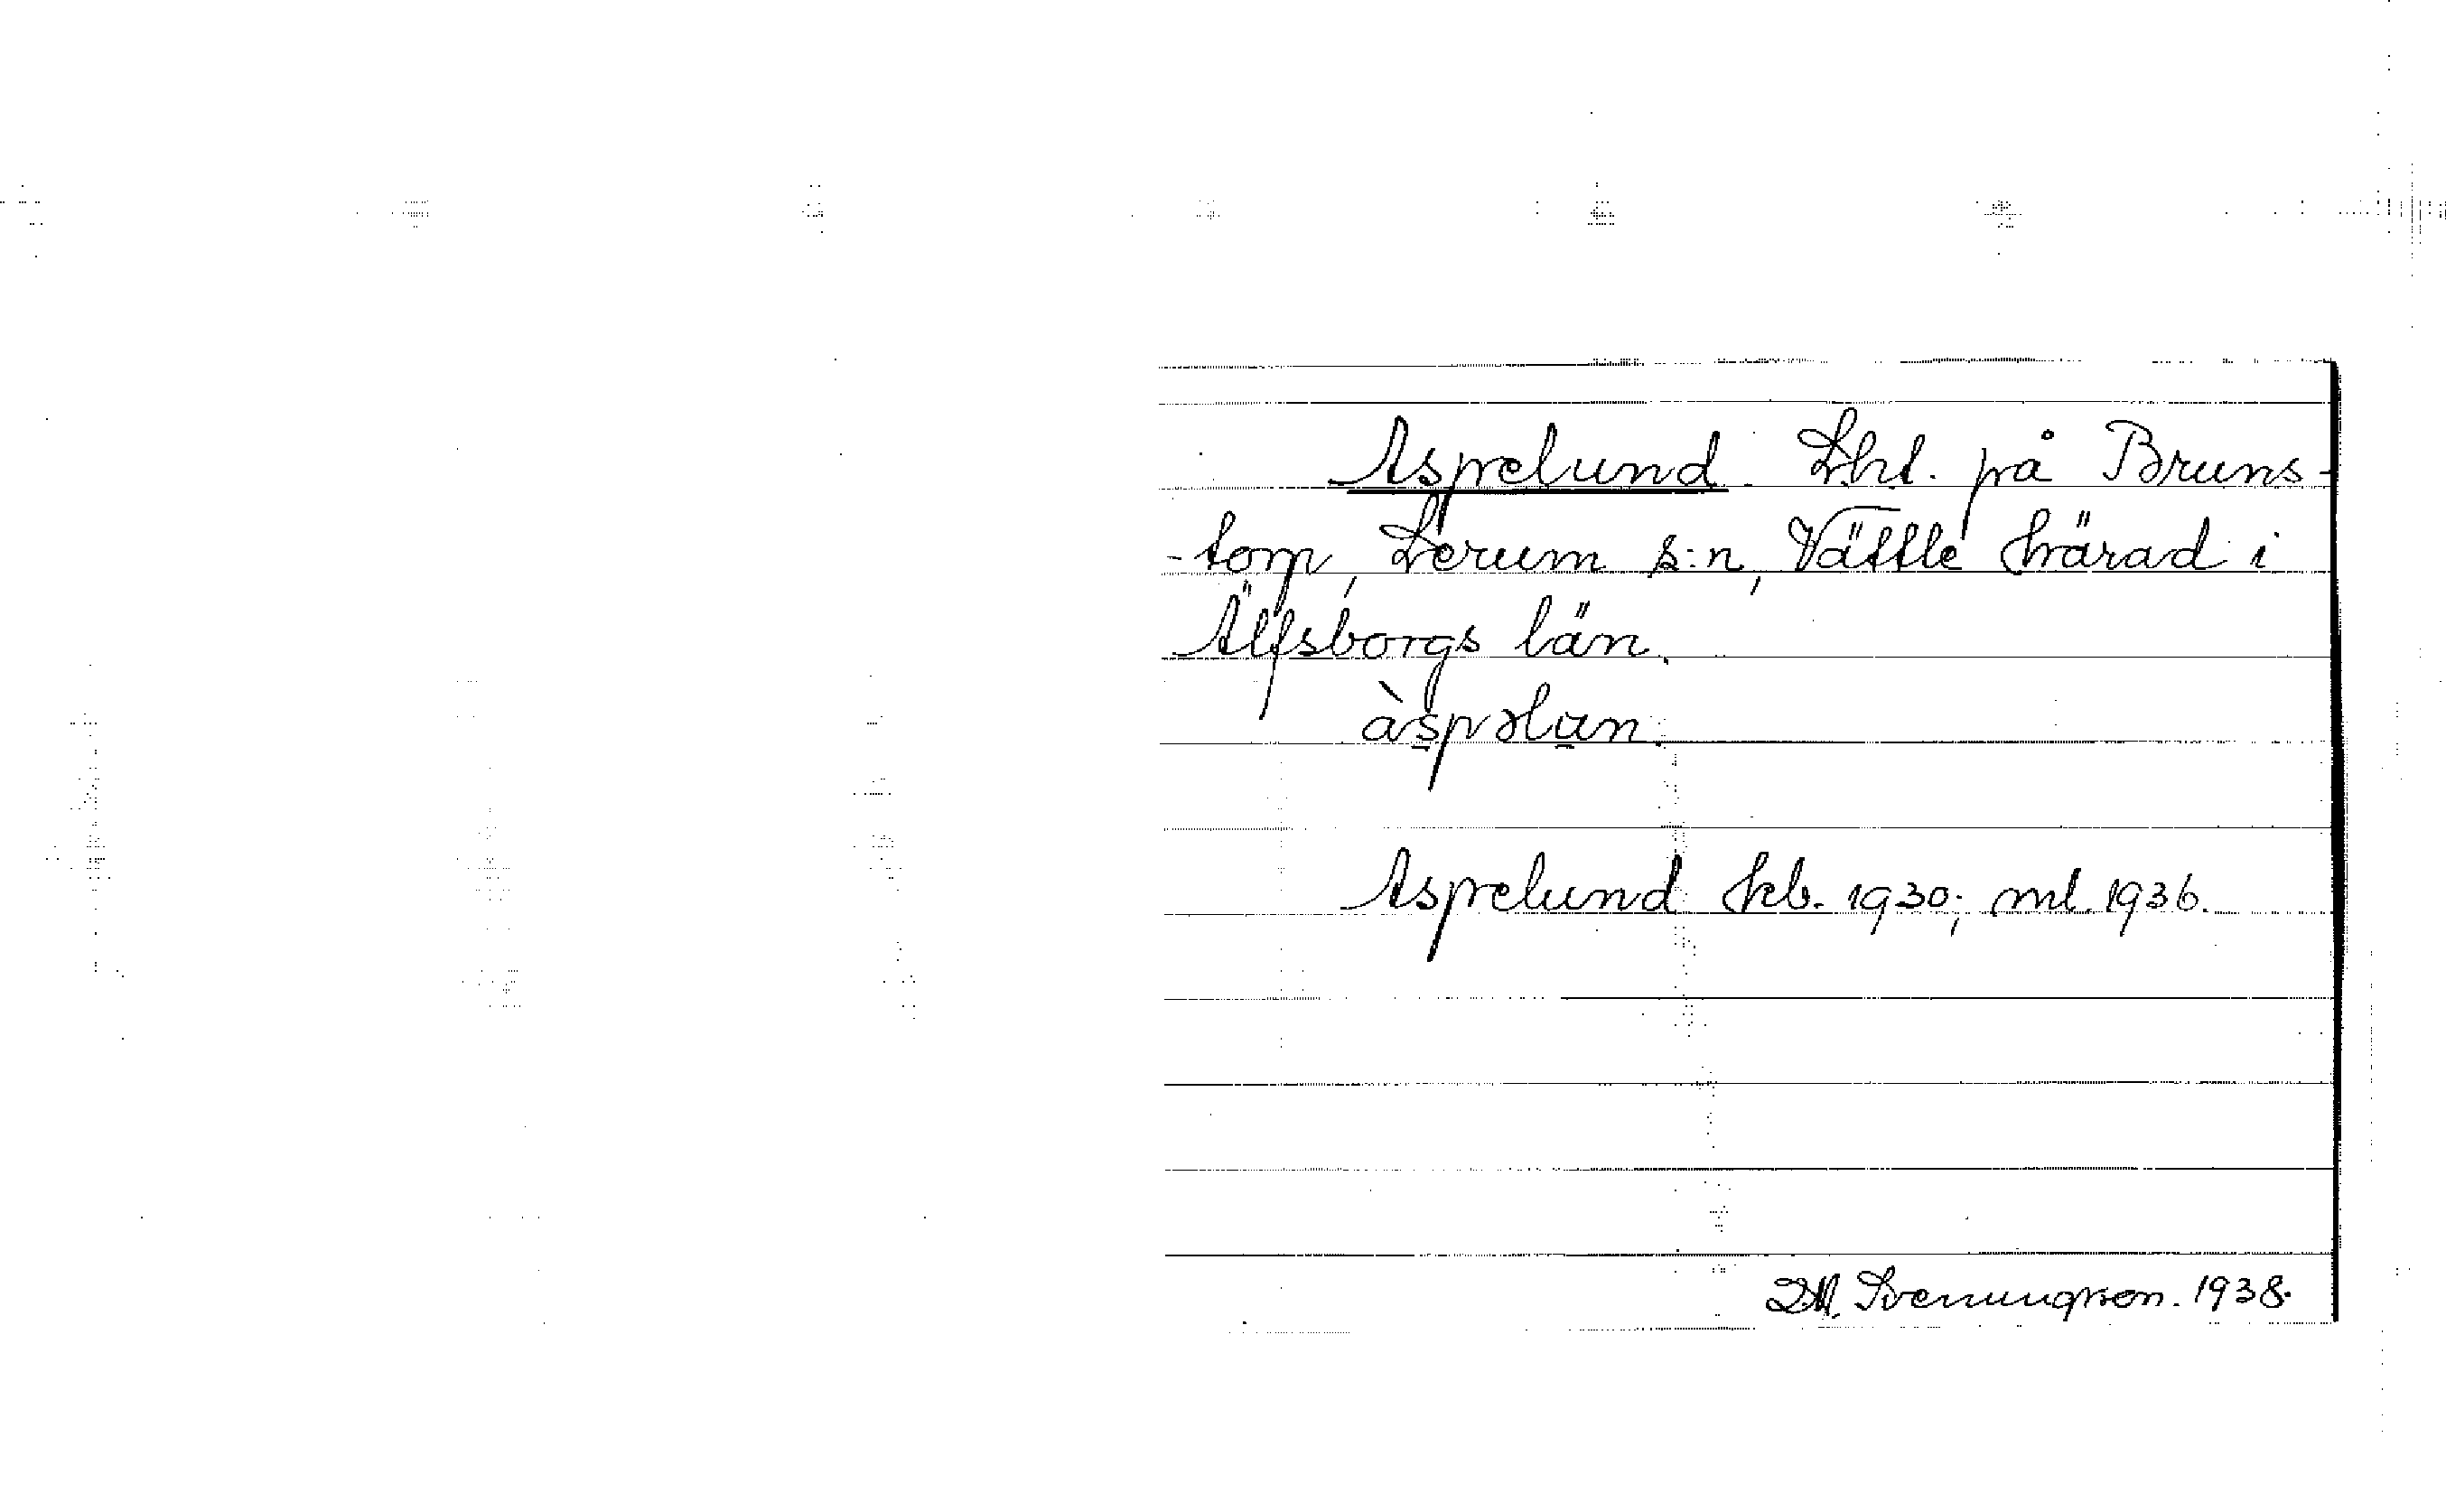 Aspelund. Lht. på Bruns-
-torp, Lerum s:n, Vättle härad i
Älfsborgs län.
àspəlun.
Aspelund hkb. 1930; ml. 1936.
D.M. Svenungsson. 1938.